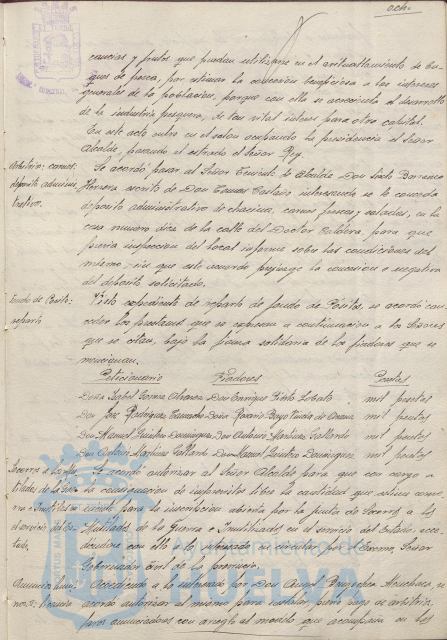 och-
cancías y frutos que puedan utilizarse en el avituallamiento de bu-
ques de pesca, por estimar la concesión beneficiosa a los intereses
generales de la población, porque con ella se acrecienta el desarrollo
de la industria pesquera, de tan vital interés para esta capital.
En este acto entra en el salón ocupando la presidencia el Señor
Alcalde, pasando al estrado el Señor Rey.
Arbitrios: carnes:
depósito adminis-
trativo.
Se acordó pasar al Señor Teniente de Alcalde Don Barranco
Herrera escrito de Don Tomás interesando se le conceda
depósito administrativo de chacina, carnes frescas y saladas, en la
casa número doce de la calle del Doctor Rubio para que
previa inspección del local informe sobre las condiciones del
mismo, sin que este acuerdo prejuzgue la concesión o negativa
del depósito solicitado.
Fondo de Pósito:
reparto
Visto expediente de reparto de fondo de Pósitos, se acordó con-
ceder los préstamos que se expresan a continuación a los Señores
que se citan, bajo la fianza solidaria de los fiadores que se
mencionan.
Peticionario Fiadores Pesetas
Doña Isabel Gómez Don Enrique Pinto Lobato mil pesetas
Don José Rodríguez Doña Rosario mil pesetas
Don Manuel Domínguez Don Antonio Martínez Gallardo mil pesetas
Don Antonio Martínez Gallardo Don Manuel Domínguez mil pesetas
Se acordó autorizar al Señor Alcalde para que con cargo a
la consignación de imprevistos libre la cantidad que estime conve-
niente para la suscripción abierta por la Junta de Socorro a los
Mutilados de la Guerra e Inutilizados en el servicio del Estado, acce-
diéndose con ello a lo interesado en circular por el Excmo. Señor
Gobernador Civil de la provincia.
Accediendo a lo interesado por Don Angel se
acordó autorizar al mismo para instalar previo pago de arbitrios,
anunciadores con arreglo al modelo que acompaña en los
Ayuntamiento de
HUELVA